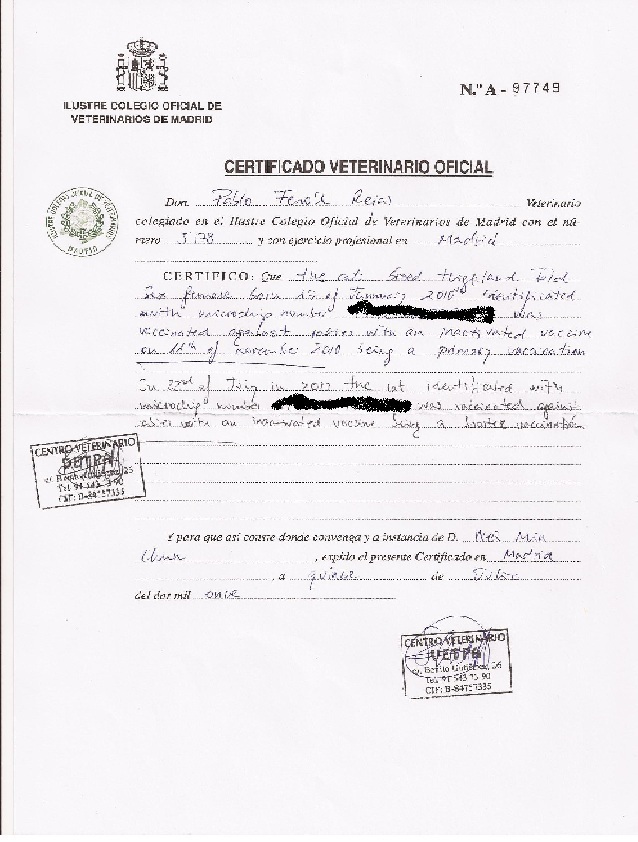 N.º A - 97749
ILUSTRE COLEGIO OFICIAL DE
VETERINARIOS DE MADRID
CERTIFICADO VETERINARIO OFICIAL
Don Pablo Veterinario
colegiado en el Ilustre Colegio Oficial de Veterinarios de Madrid con el nú-
mero 5178 y con ejercicio profesional en Madrid
CERTIFICO: Que the cat breed Highland Fold
Sex female born 15 of January 2010 identificated
with microchip number was
vaccinated against rabies with an inactivated vaccine
on 18th of november 2010 being a primary vaccination
In 22nd of in the cat identificated with
microchip number was vaccinated against
rabies with an inactivated vaccine being a vaccination
CENTRO VETERINARIO
Tel. 91 543 73 90
CIF: B-84757335
Y para que así conste donde convenga y a instancia de D. Mei Min
, expido el presente Certificado en Madrid
a quince de
del dos mil once
CENTRO VETERINARIO
c/. Benito Gutiérrez, 26
Tel. 91 543 73 90
CIF: B-84757335